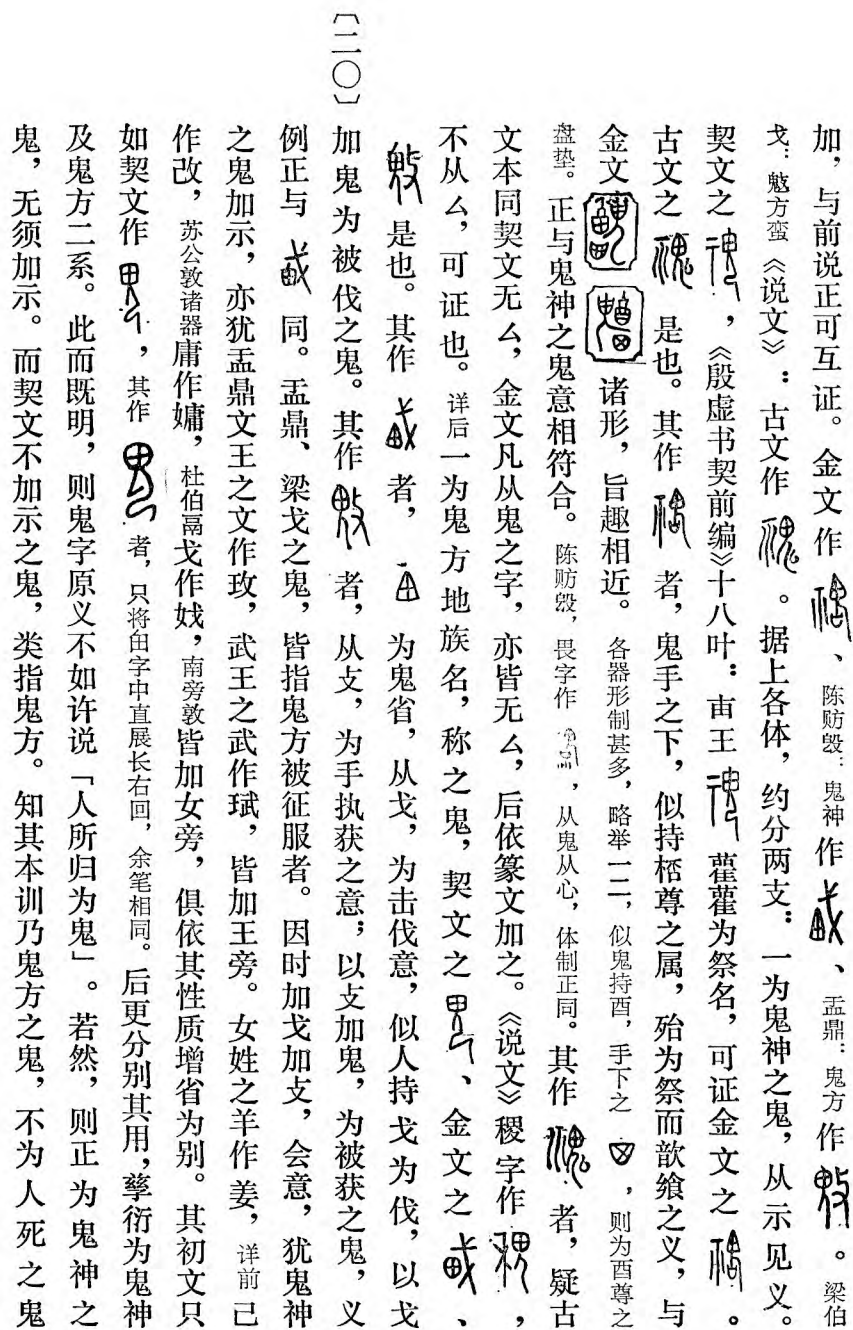 加，与前说正可互证。金文作、陈昉𣪘：鬼神作、盂鼎：鬼方作。梁伯
戈：鬾方蛮《说文》：古文作。据上各体，约分两支：一为鬼神之鬼，从示见义。
契文之，《殷虚书契前编》十八叶：𠧟王雚雚为祭名，可证金文之。
古文之是也。其作者，鬼手之下，似持桮尊之属，殆为祭而歆飨之义，与
金文诸形，旨趣相近。各器形制甚多，略举一二，似鬼持酉，手下之，则为酉尊之
盘垫。正与鬼神之鬼意相符合。陈昉𣪘，畏字作，从鬼从心，体制正同。其作者，疑古
文本同契文无厶，金文凡从鬼之字，亦皆无厶，后依篆文加之。《说文》稷字作，
不从厶，可证也。详后一为鬼方地族名，称之鬼，契文之、金文之、
是也。其作者，甶为鬼省，从戈，为击伐意，似人持戈为伐，以戈
〔二〇〕加鬼为被伐之鬼。其作者，从攴，为手执获之意；以攴加鬼，为被获之鬼，义
例正与同。盂鼎、梁戈之鬼，皆指鬼方被征服者。因时加戈加攴，会意，犹鬼神
之鬼加示，亦犹盂鼎文王之文作玟，武王之武作珷，皆加王旁。女姓之羊作姜，详前己
作改，苏公敦诸器庸作嫞，杜伯鬲戈作㚤，南旁敦皆加女旁，俱依其性质增省为别。其初文只
如契文作，其作者，只将甶字中直展长右回，余笔相同。后更分别其用，孳衍为鬼神
及鬼方二系。此而既明，则鬼字原义不如许说「人所归为鬼」。若然，则正为鬼神之
鬼，无须加示。而契文不加示之鬼，类指鬼方。知其本训乃鬼方之鬼，不为人死之鬼